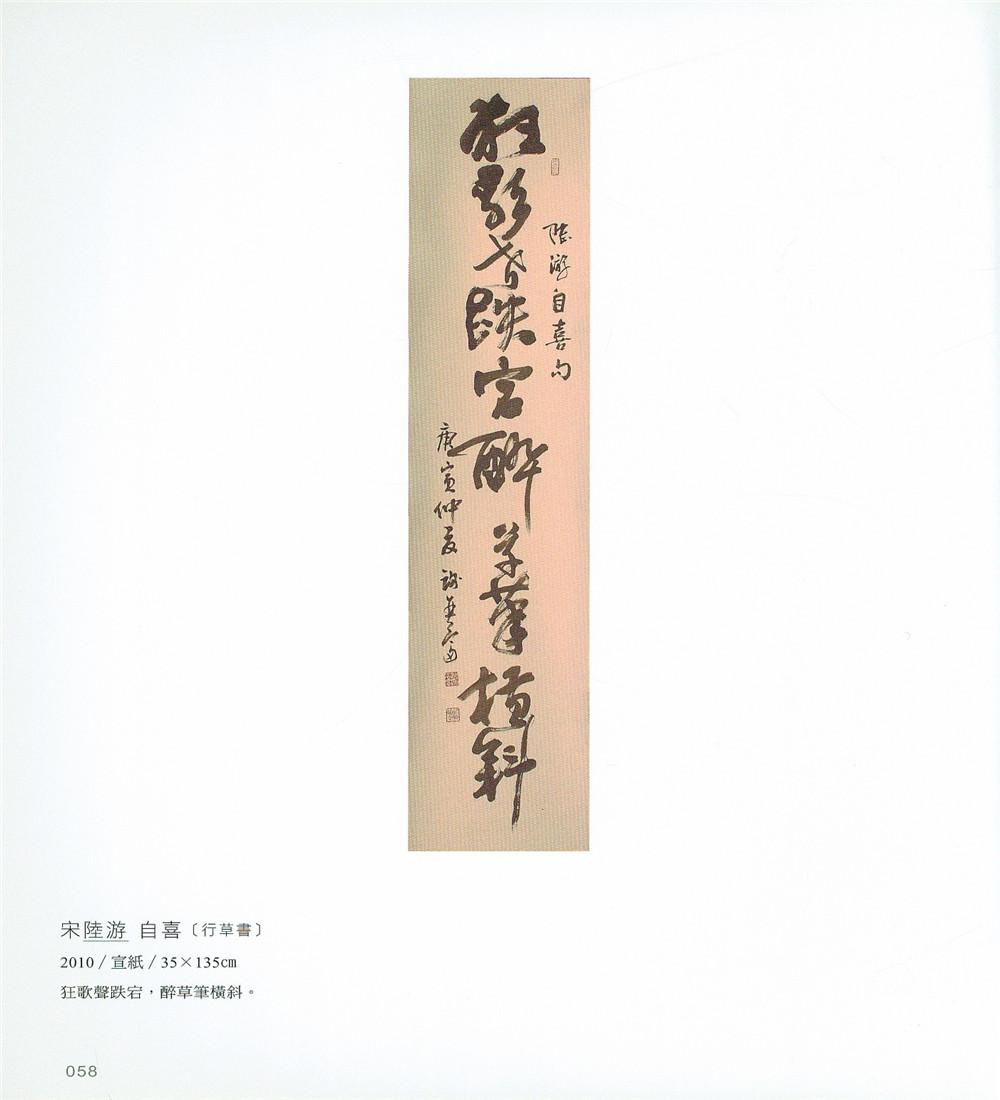 陸游自喜句
狂歌聲跌宕醉草筆橫斜
庚寅仲夏
宋陸游 自喜〔行草書〕
2010 / 宣紙 / 35×135㎝
狂歌聲跌宕，醉草筆橫斜。
058